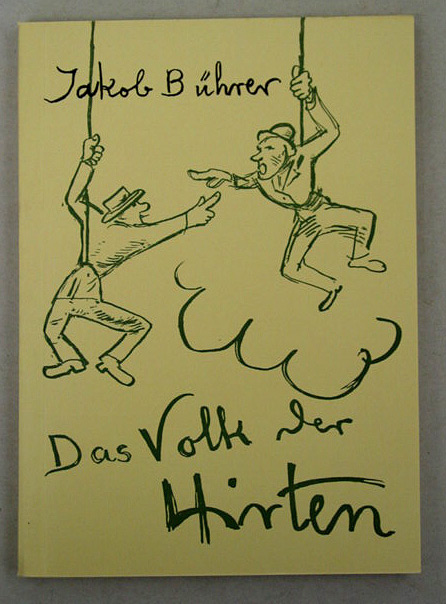 Jakob Bührer
Das Volk der
Hirten